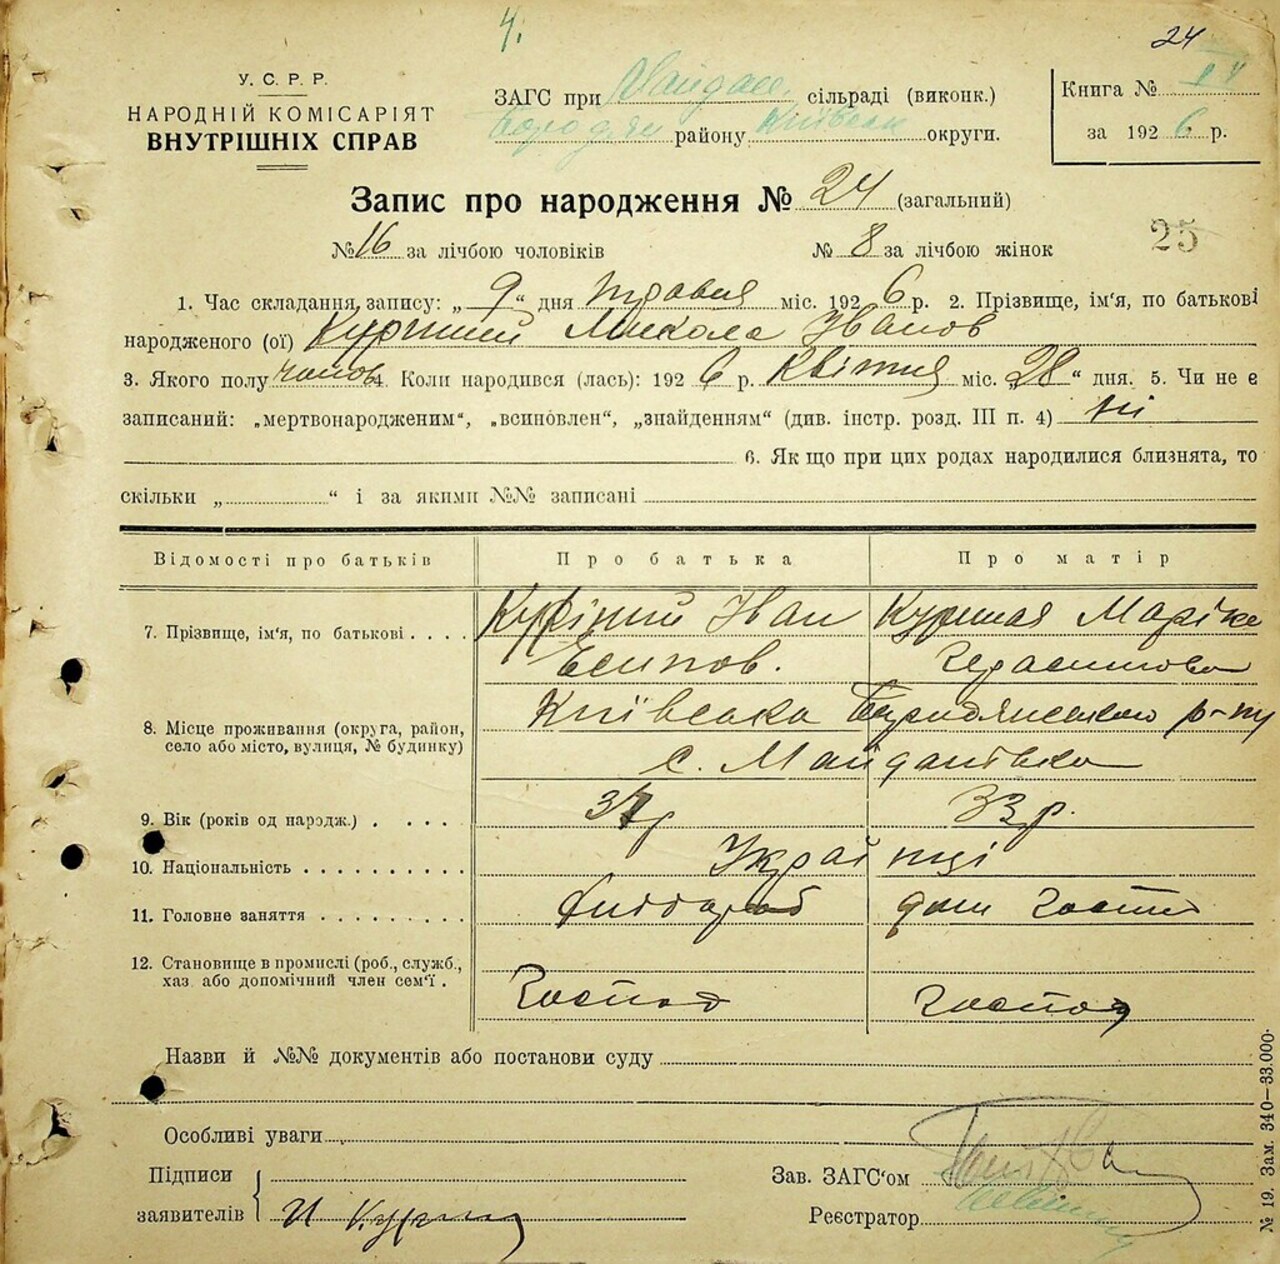 4.
24
У. С. Р. Р.
НАРОДНІЙ КОМІСАРІЯТ
ВНУТРІШНІХ СПРАВ
ЗАГС при Майдан. сільраді (виконк.)
Бородян району Київськ округи.
Книга №
за 1926 р.
Запис про народження № 24 (загальний)
№ 16 за лічбою чоловіків № 8 за лічбою жінок
25
1. Час складання запису: „ 9 “ дня травня міс. 1926 р. 2. Прізвище, ім'я, по батькові
народженого (ої) Микола Іванов
3. Якого полу чолов. 4. Коли народився (лась): 1926 р. Квітня міс. „28“ дня. 5. Чи не є
записаний: „мертвонародженим“, „всиновлен“, „знайденням“ (див. інстр. розд. III п. 4) ні
6. Як що при цих родах народилися близнята, то
скільки „ “ і за якими №№ записані
Відомості про батьків Про батька Про матір
7. Прізвище, ім'я, по батькові . . . . Іван
Єсипов. Герасимова
8. Місце проживання (округа, район,
село або місто, вулиця, № будинку)
Київська Бородянського р-ну
с. Майданівка
9. Вік (років од народж.) . . . . 33 р.
10. Національність . . . . . . . . . . Українці
11. Головне заняття . . . . . . . . . хлібороб дом госпо
12. Становище в промислі (роб., служб.,
хаз. або допомічний член сем'ї .
Господ Господ
Назви й №№ документів або постанови суду
Особливі уваги
Підписи
заявителів { И
Зав. ЗАГС'ом
Реєстратор
№ 19. Зам. 340—33.000.